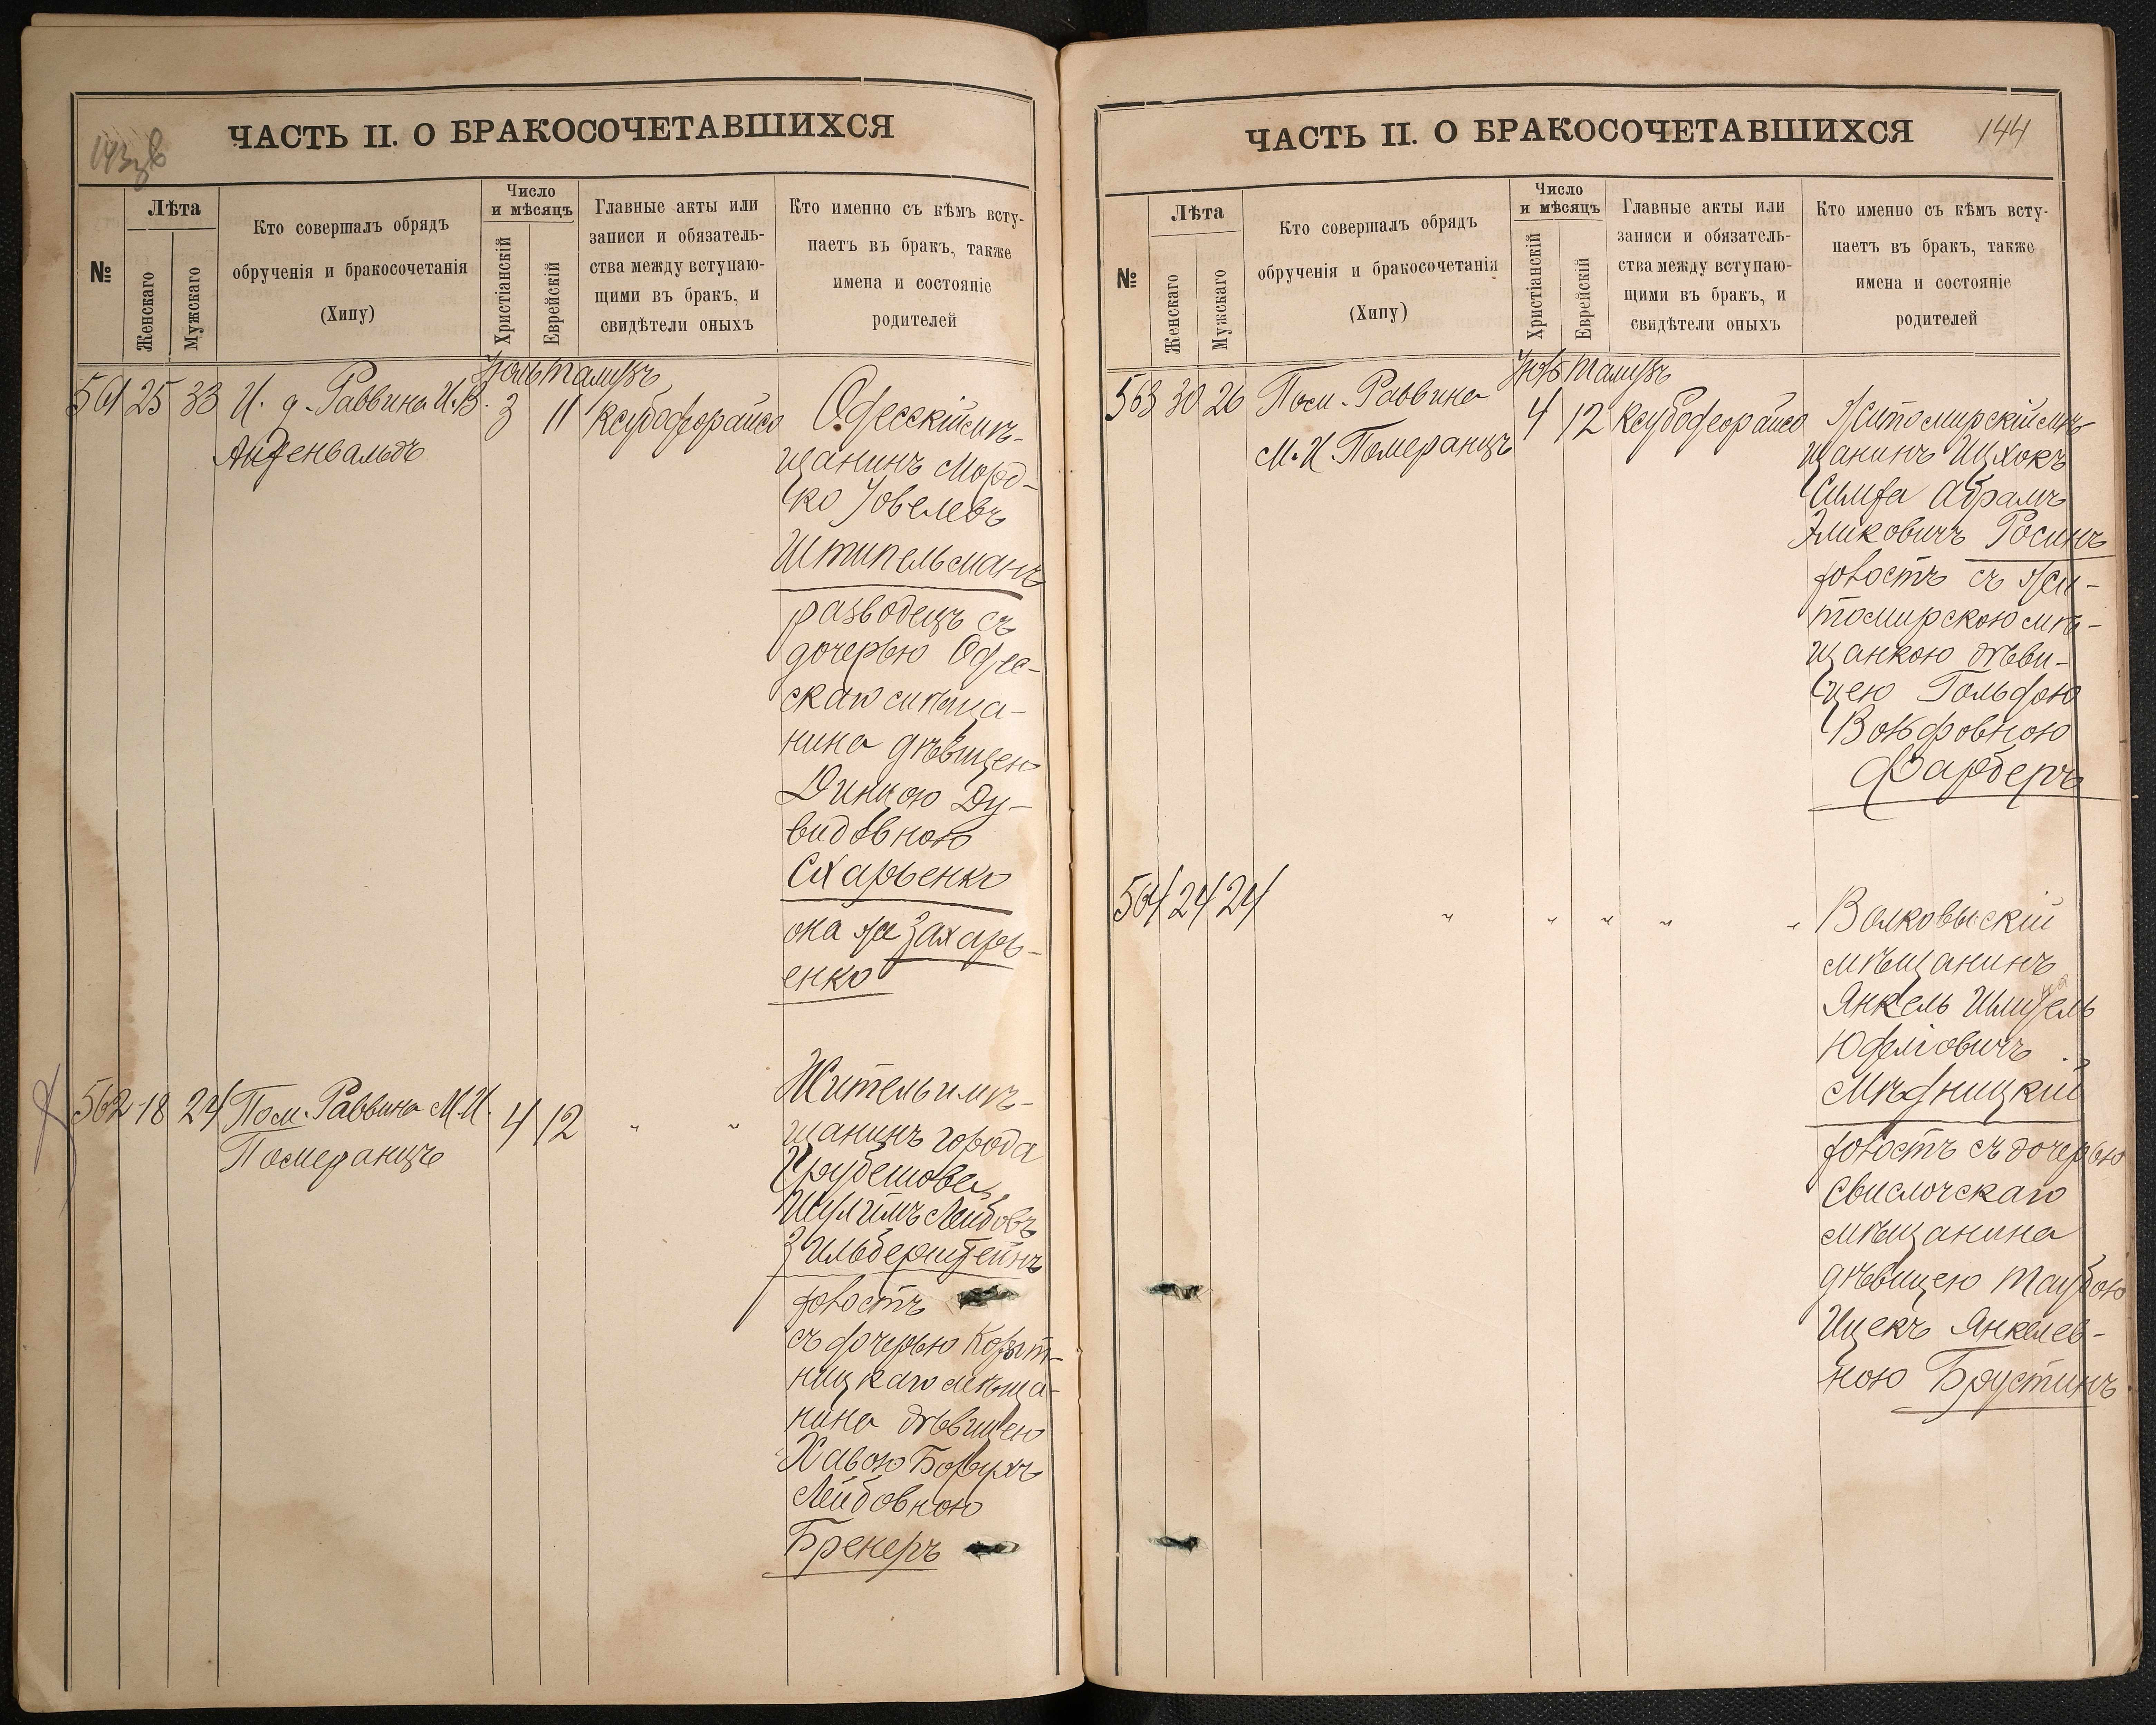 143 зв
ЧАСТЬ II. О БРАКОСОЧЕТАВШИХСЯ
№
Лѣта
Женскаго
Мужскаго
Кто совершалъ обрядъ
обрученія и бракосочетанія
(Хипу)
Число
и мѣсяцъ
Христіанскій
Еврейскій
Главные акты или
записи и обязатель-
ства между вступаю-
щими въ бракъ, и
свидѣтели оныхъ
Кто именно съ кѣмъ всту-
паетъ въ бракъ, также
имена и состояніе
родителей
Іюль Тамузъ
561 25 33 И. д. Раввина И. В. 3 11 Ксубодеорайсо
Одесскій мѣ-
щанинъ Морд-
ко Іовелевъ
Штипельманъ
разводецъ съ
дочерью Одес-
скаго мѣща-
нина дѣвицею
Диною Ду-
видовною
Сахарьенко
она же Захарь-
енко
562 18 24 Пом. Раввина М. И.
Померанцъ
4 12 " "
Житель и мѣ-
щанинъ города
Грубешова
Шулимъ Лейбовъ
Зильберштейнъ
холостъ
съ дочерью Корыт-
ницкаго мѣща-
нина дѣвицею
Хавою Борухъ
Лейбовною
Бренеръ
ЧАСТЬ II. О БРАКОСОЧЕТАВШИХСЯ
144
№
Лѣта
Женскаго
Мужскаго
Кто совершалъ обрядъ
обрученія и бракосочетанія
(Хипу)
Число
и мѣсяцъ
Христіанскій
Еврейскій
Главные акты или
записи и обязатель-
ства между вступаю-
щими въ бракъ, и
свидѣтели оныхъ
Кто именно съ кѣмъ всту-
паетъ въ бракъ, также
имена и состояніе
родителей
Іюль Тамузъ
563 30 26 Пом. Раввина
М. И. Померанцъ
4 12 Ксубодеорайсо
Житомирскій мѣ-
щанинъ Ицхокъ
Симха Абрамъ
Эликовичъ Росинъ
холостъ съ Жи-
томирскою мѣ-
щанкою дѣви-
цею Гольдою
Вольфовною
Фарберъ
564 24 24 " " " " "
Волковыскій
мѣщанинъ
Янкель
Юделіовичъ
Мѣдницкій
холостъ съ дочерью
Свислочскаго
мѣщанина
дѣвицею Таубою
Ицекъ Янкелев-
ною Брустинъ